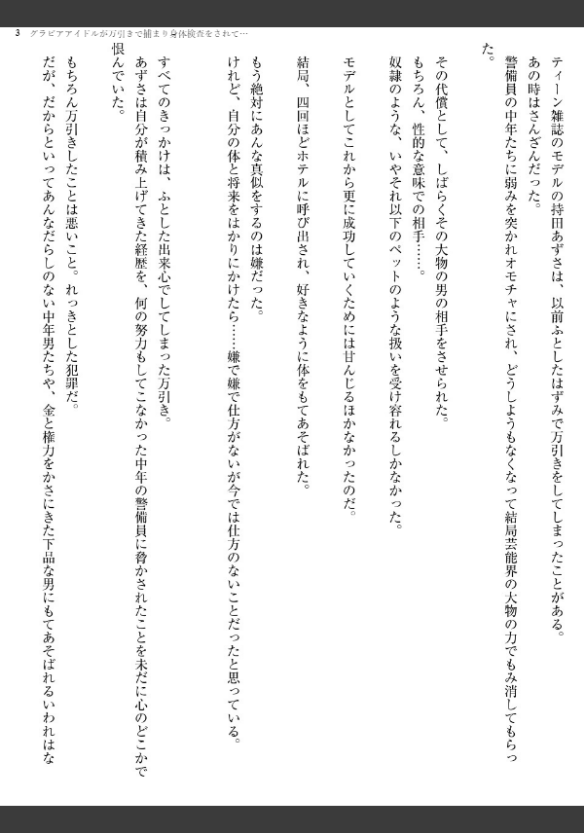 3 グラビアアイドルが万引きで捕まり身体検査をされて…
ティーン雑誌のモデルの持田あずさは、以前ふとしたはずみで万引きをしてしまったことがある。
あの時はさんざんだった。
警備員の中年たちに弱みを突かれオモチャにされ、どうしようもなくなって結局芸能界の大物の力でもみ消してもらっ
た。
その代償として、しばらくその大物の男の相手をさせられた。
もちろん、性的な意味での相手……。
奴隷のような、いやそれ以下のペットのような扱いを受け容れるしかなかった。
モデルとしてこれから更に成功していくためには甘んじるほかなかったのだ。
結局、四回ほどホテルに呼び出され、好きなように体をもてあそばれた。
もう絶対にあんな真似をするのは嫌だった。
けれど、自分の体と将来をはかりにかけたら……嫌で嫌で仕方がないが今では仕方のないことだったと思っている。
すべてのきっかけは、ふとした出来心でしてしまった万引き。
あずさは自分が積み上げてきた経歴を、何の努力もしてこなかった中年の警備員に脅かされたことを未だに心のどこかで
恨んでいた。
もちろん万引きしたことは悪いこと。れっきとした犯罪だ。
だが、だからといってあんなだらしのない中年男たちや、金と権力をかさにきた下品な男にもてあそばれるいわれはな